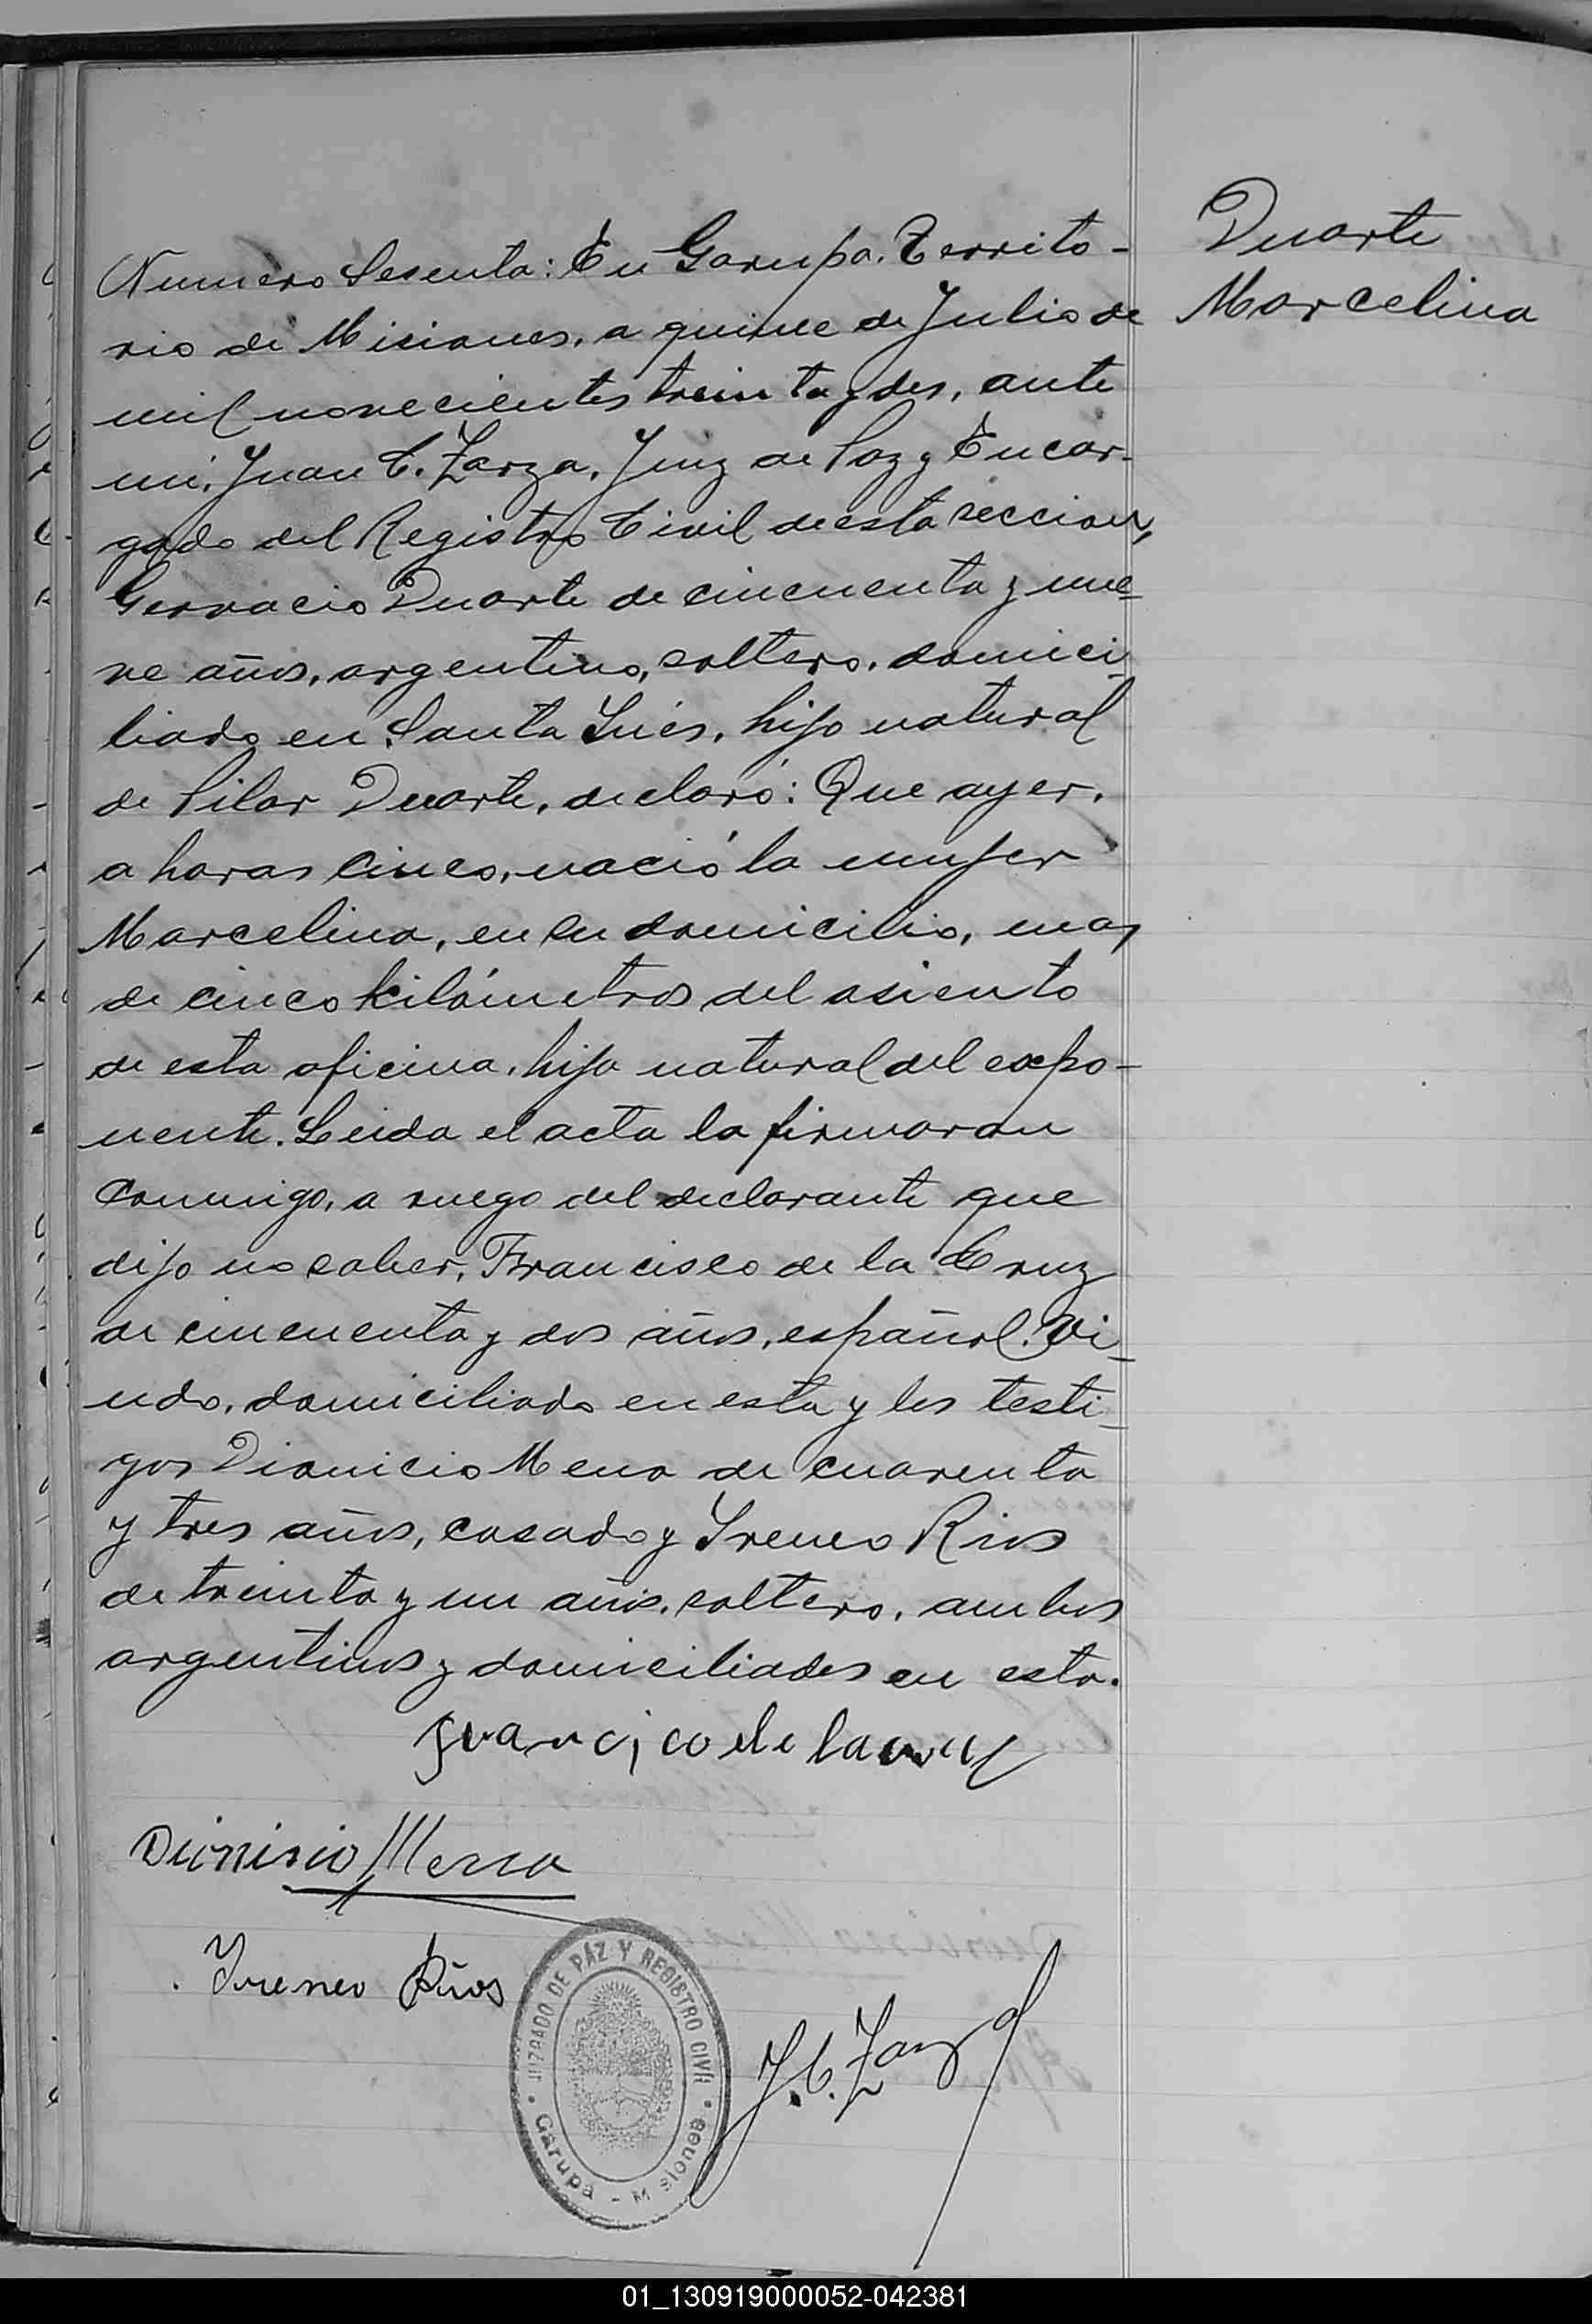 Duarte
Marcelina
Numero Sesenta: En Garupa. Territo-
rio de Misiones, a quince de Julio de
mil novecientos treinta y dos, ante
mi, Juan C. Zarza, Juez de Paz y Encar-
gado del Registro Civil de esta seccion,
Gervacio Duarte de cincuenta y nue-
ve años, argentino, soltero, domici-
liado en Santa Inés, hijo natural
de Pilar Duarte, declaró: Que ayer,
a horas cinco, nació la mujer
Marcelina, en su domicilio, mas
de cinco kilómetros del asiento
de esta oficina, hija natural del expo-
nente. Leida el acta la firmaron
conmigo, a ruego del declarante que
dijo no saber, Francisco de la Cruz
de cincuenta y dos años, español, vi-
udo, domiciliado en esta y los testi-
gos Dionicio Mena de cuarenta
y tres años, casado y Ireneo Rios
de treinta y un años, soltero, ambos
argentinos y domiciliados en esta.
Francico de la cruz
Dionisio Mena
Ireneo Rios
JUZGADO DE PAZ Y REGISTRO CIVIL
Garupá - Misiones
J. C. Zarza
01_130919000052-042381